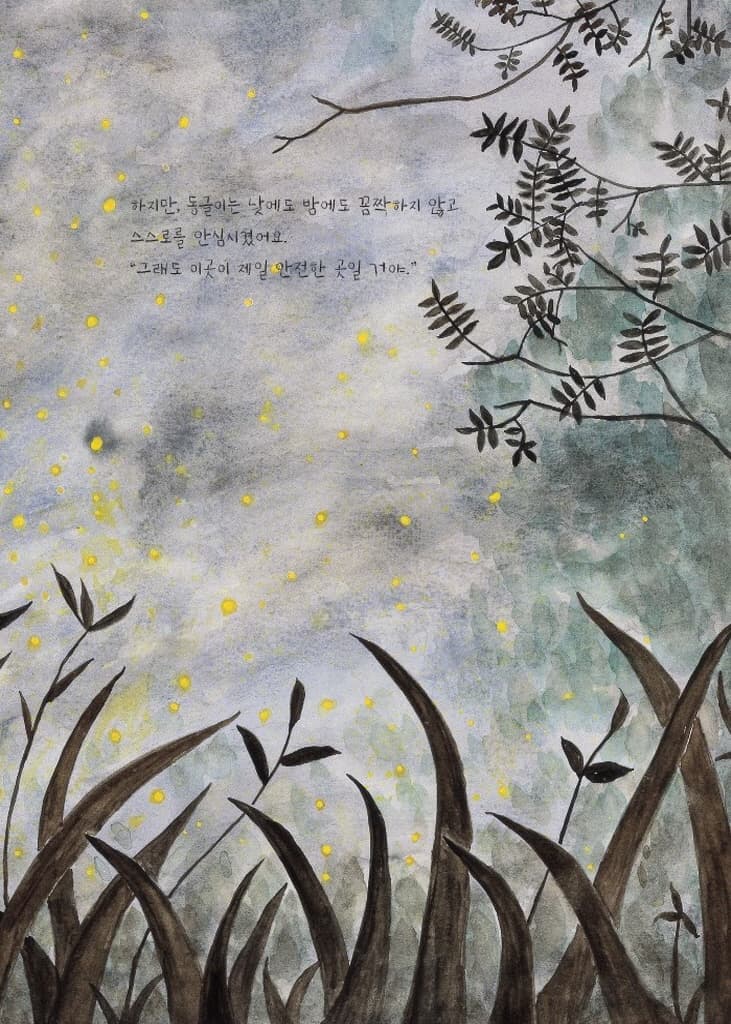 하지만, 동글이는 낮에도 밤에도 꼼짝하지 않고
스스로를 안심시켰어요.
“그래도 이곳이 제일 안전한 곳일 거야.”